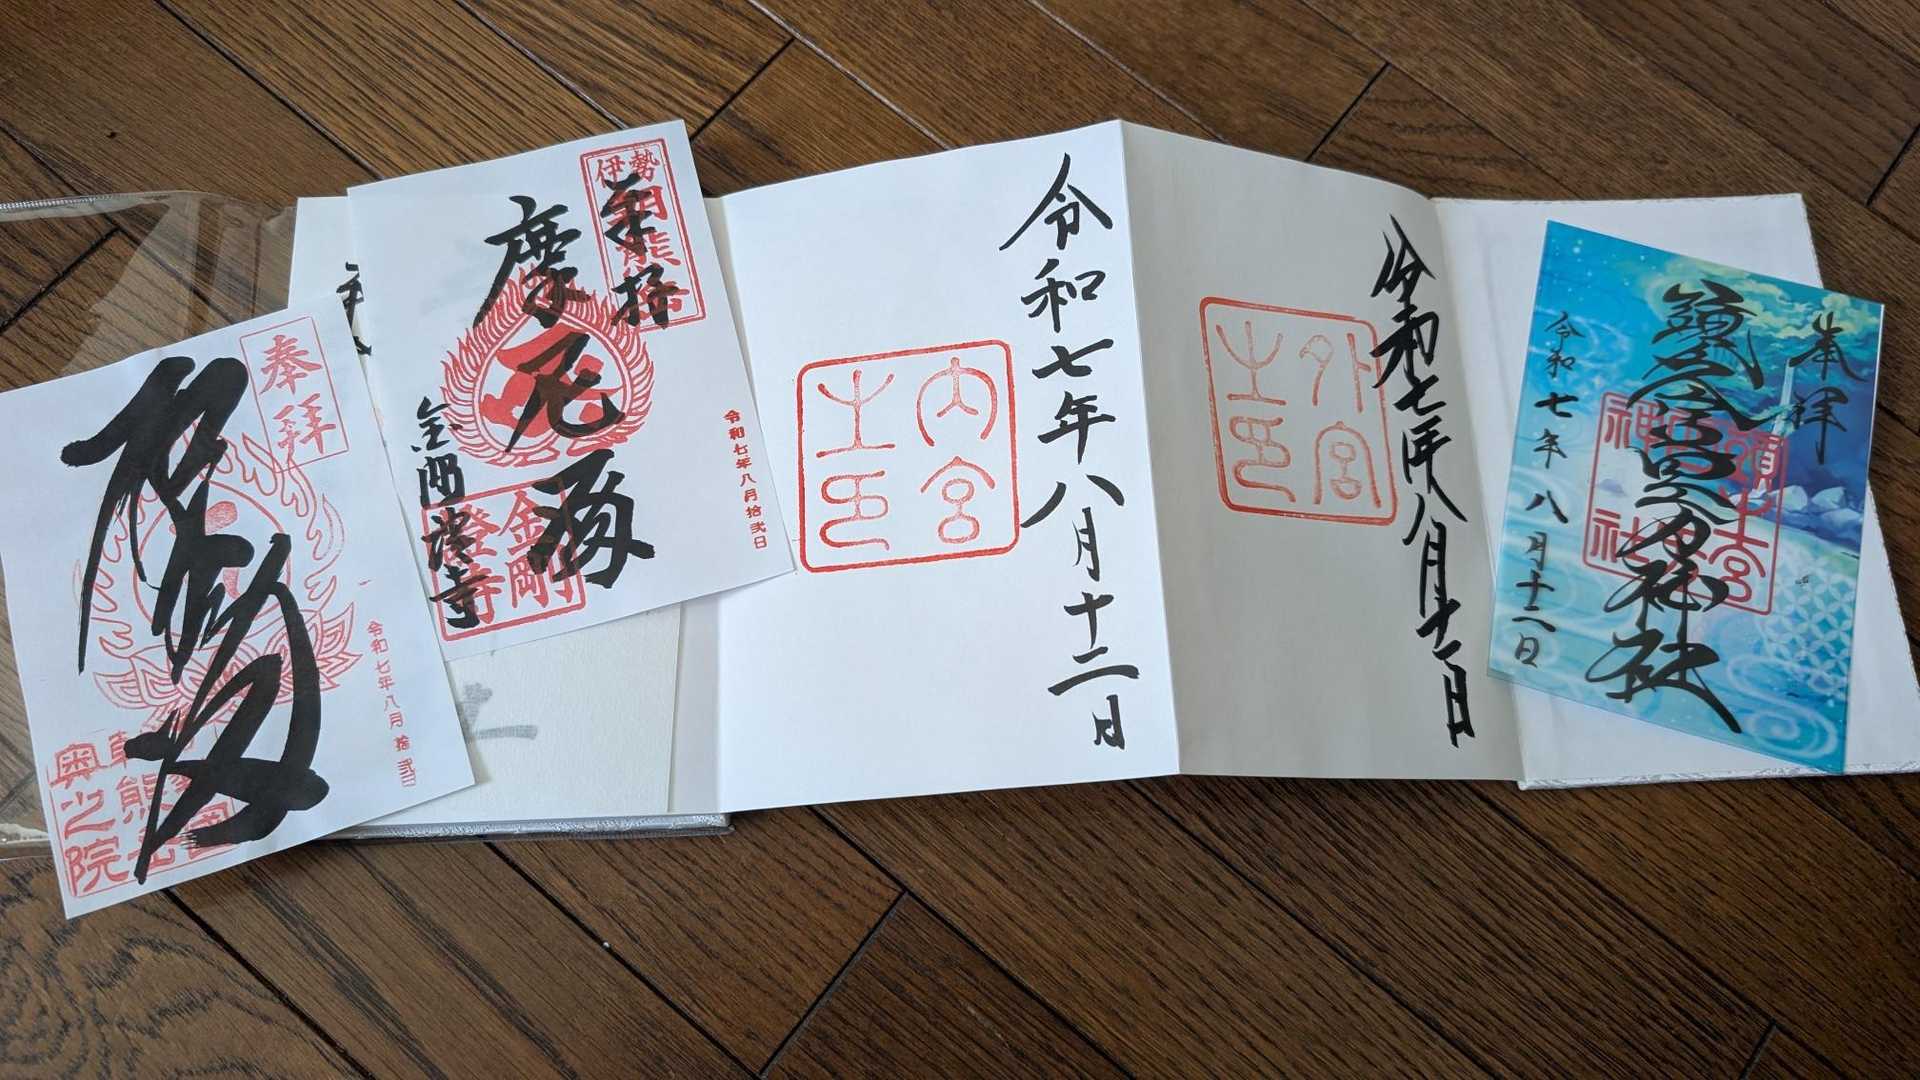 奉拝
令和七年八月拾弐日
奥之院
伊勢
朝熊岳
奉拝
摩尼殿
金剛證寺
金剛
證寺
令和七年八月拾弐日
令和七年八月十二日
内宮
之印
令和七年八月十二日
外宮
之印
奉拝
令和七年八月十二日
神社